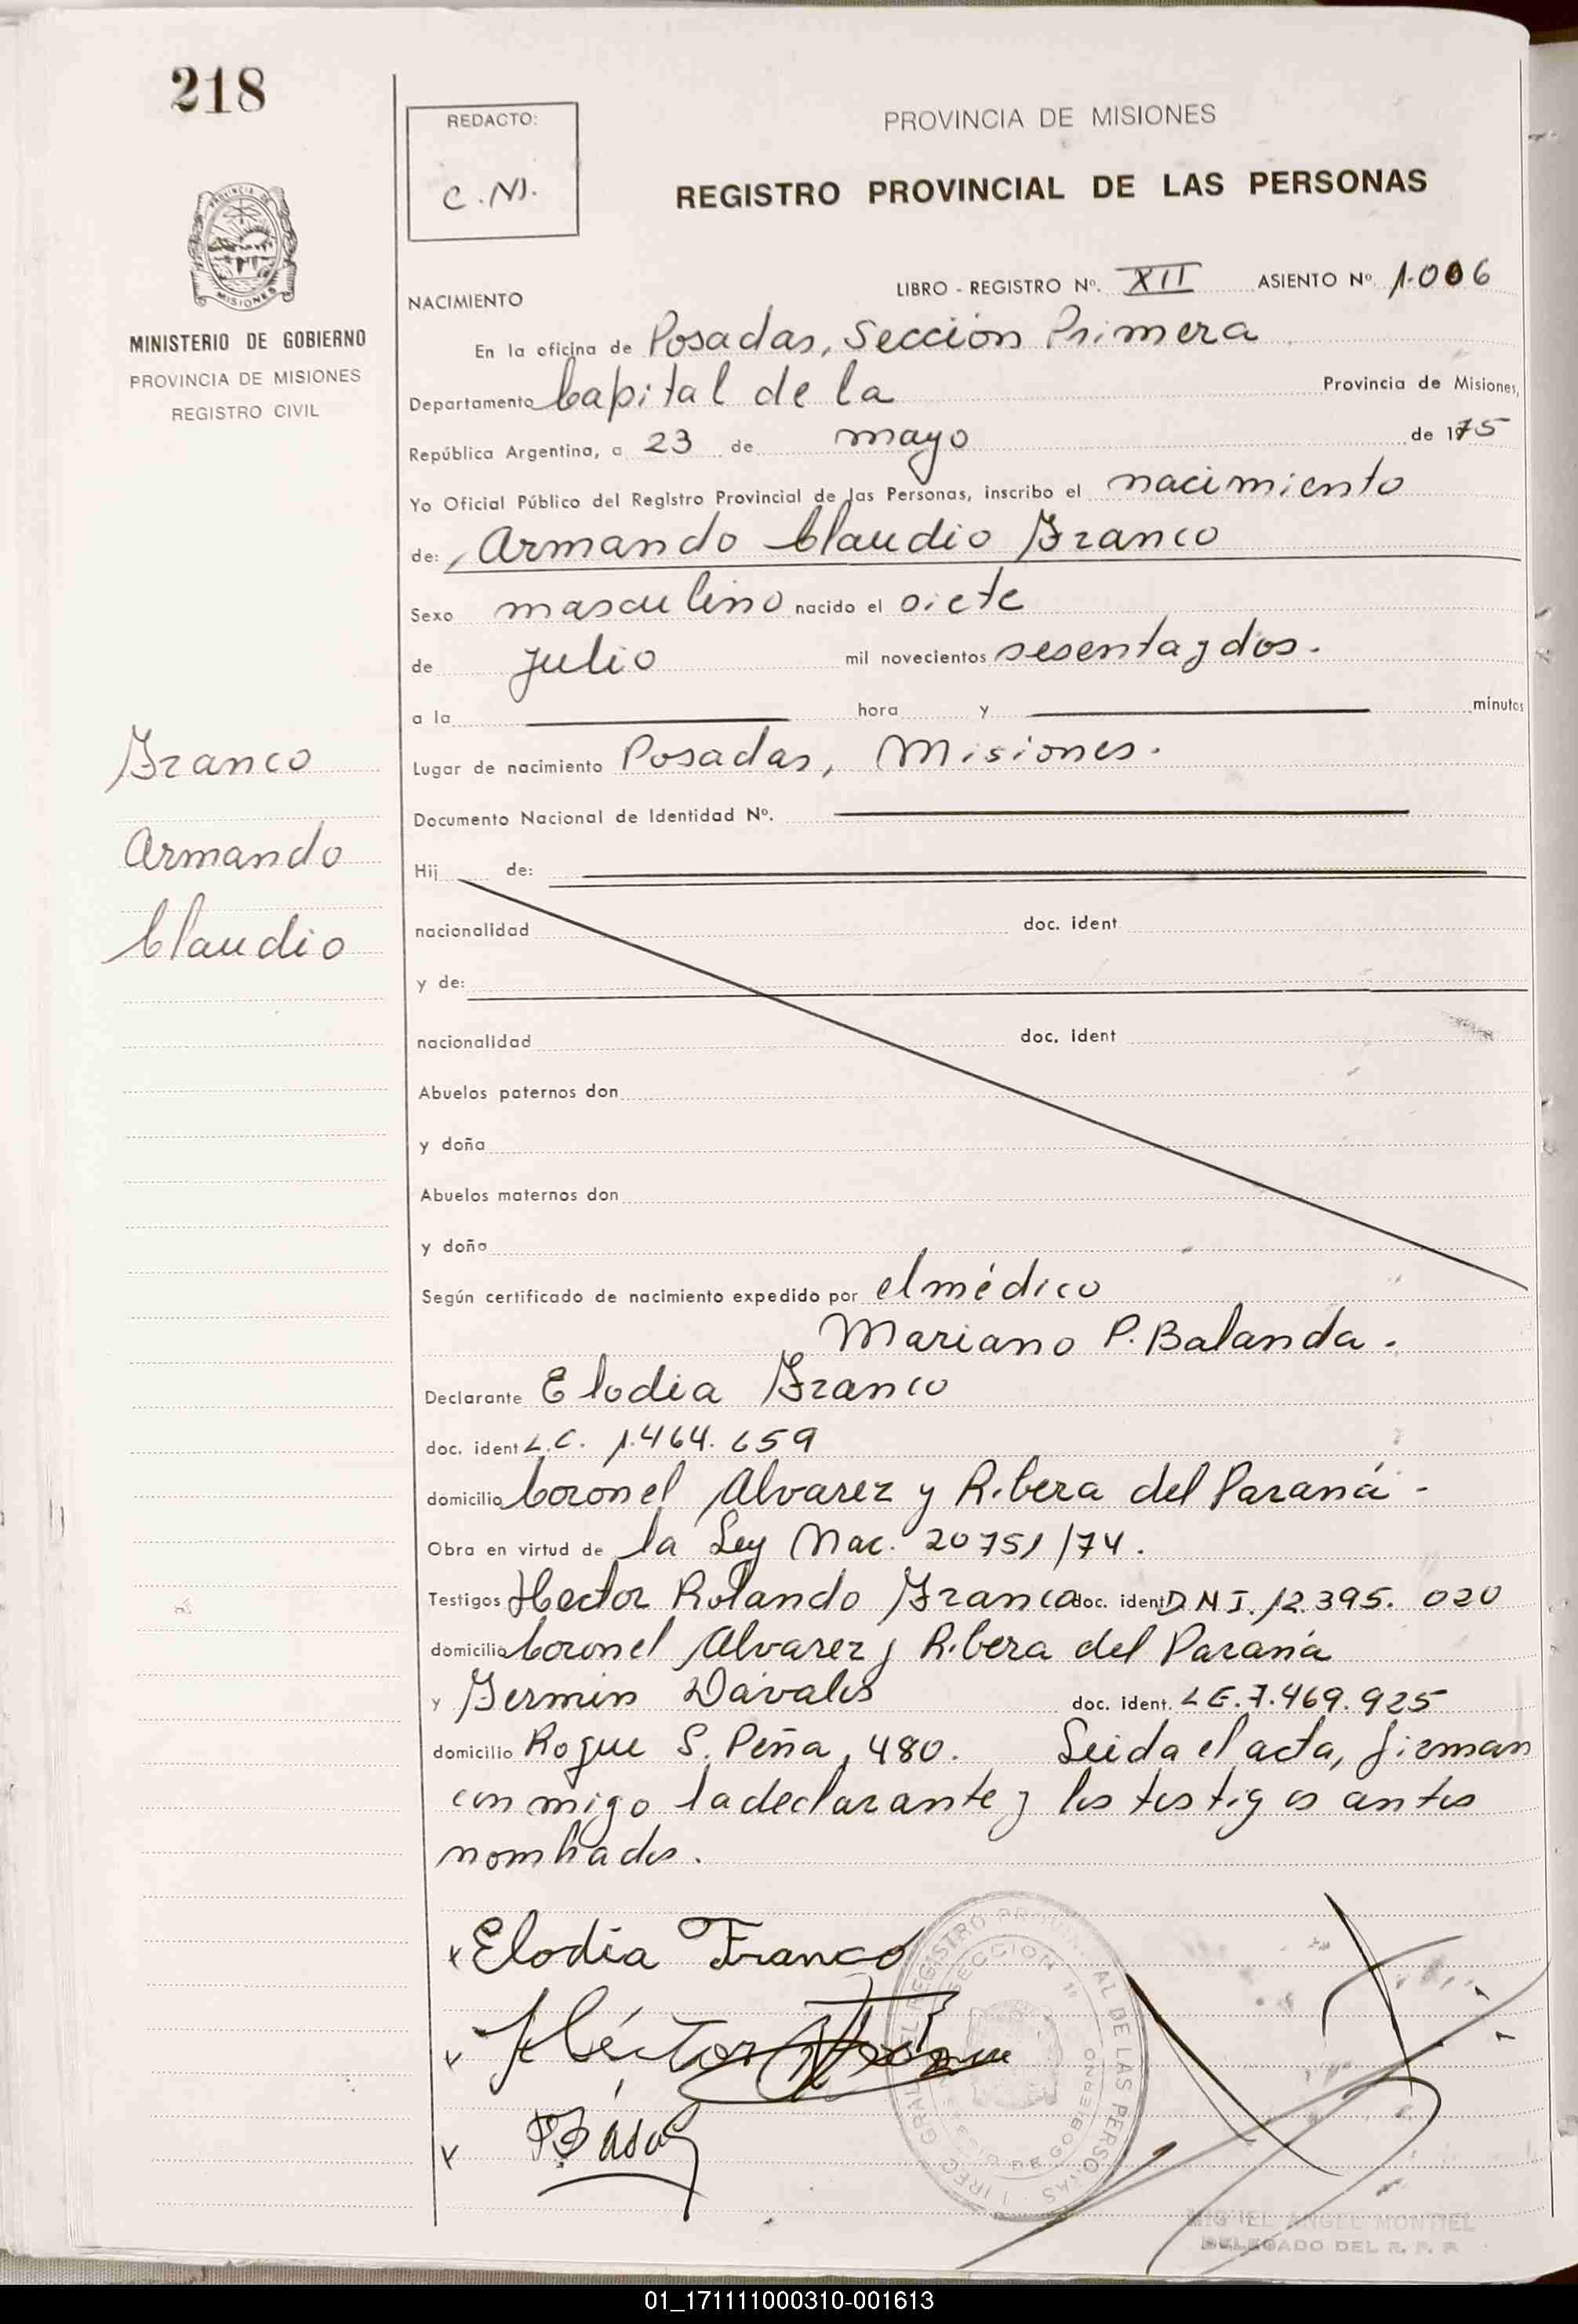 218
REDACTO:
C. M.
PROVINCIA DE MISIONES
REGISTRO PROVINCIAL DE LAS PERSONAS
PROVINCIA DE
MISIONES
MINISTERIO DE GOBIERNO
PROVINCIA DE MISIONES
REGISTRO CIVIL
NACIMIENTO
LIBRO - REGISTRO Nº. XII ASIENTO Nº 1.006
En la oficina de Posadas, Sección Primera
Departamento Capital de la Provincia de Misiones,
República Argentina, a 23 de mayo de 1975
Yo Oficial Público del Registro Provincial de las Personas, inscribo el nacimiento
de: Armando Claudio Franco
Sexo masculino nacido el siete
de julio mil novecientos sesenta y dos.
a la hora y minutos
Lugar de nacimiento Posadas, Misiones.
Franco
Armando
Claudio
Documento Nacional de Identidad Nº.
Hij de:
nacionalidad doc. ident
y de:
nacionalidad doc. ident
Abuelos paternos don
y doña
Abuelos maternos don
y doña
Según certificado de nacimiento expedido por el médico
Mariano P. Balanda.
Declarante Elodia Franco
doc. ident L.C. 1.464.659
domicilio Coronel Alvarez y Ribera del Paraná -
Obra en virtud de la Ley Nac. 20751/74.
Testigos Hector Rolando Franco doc. ident D N I. 12.395.020
domicilio Coronel Alvarez y Ribera del Paraná
y Fermin Dávalos doc. ident. L E. 7.469.925
domicilio Roque S. Peña, 480. Leida el acta, firman
conmigo la declarante y los testigos antes
nombrados.
Elodia Franco
Héctor
SECCION 1ª
MIGUEL ANGEL MONTIEL
DELEGADO DEL R. P. P.
01_171111000310-001613